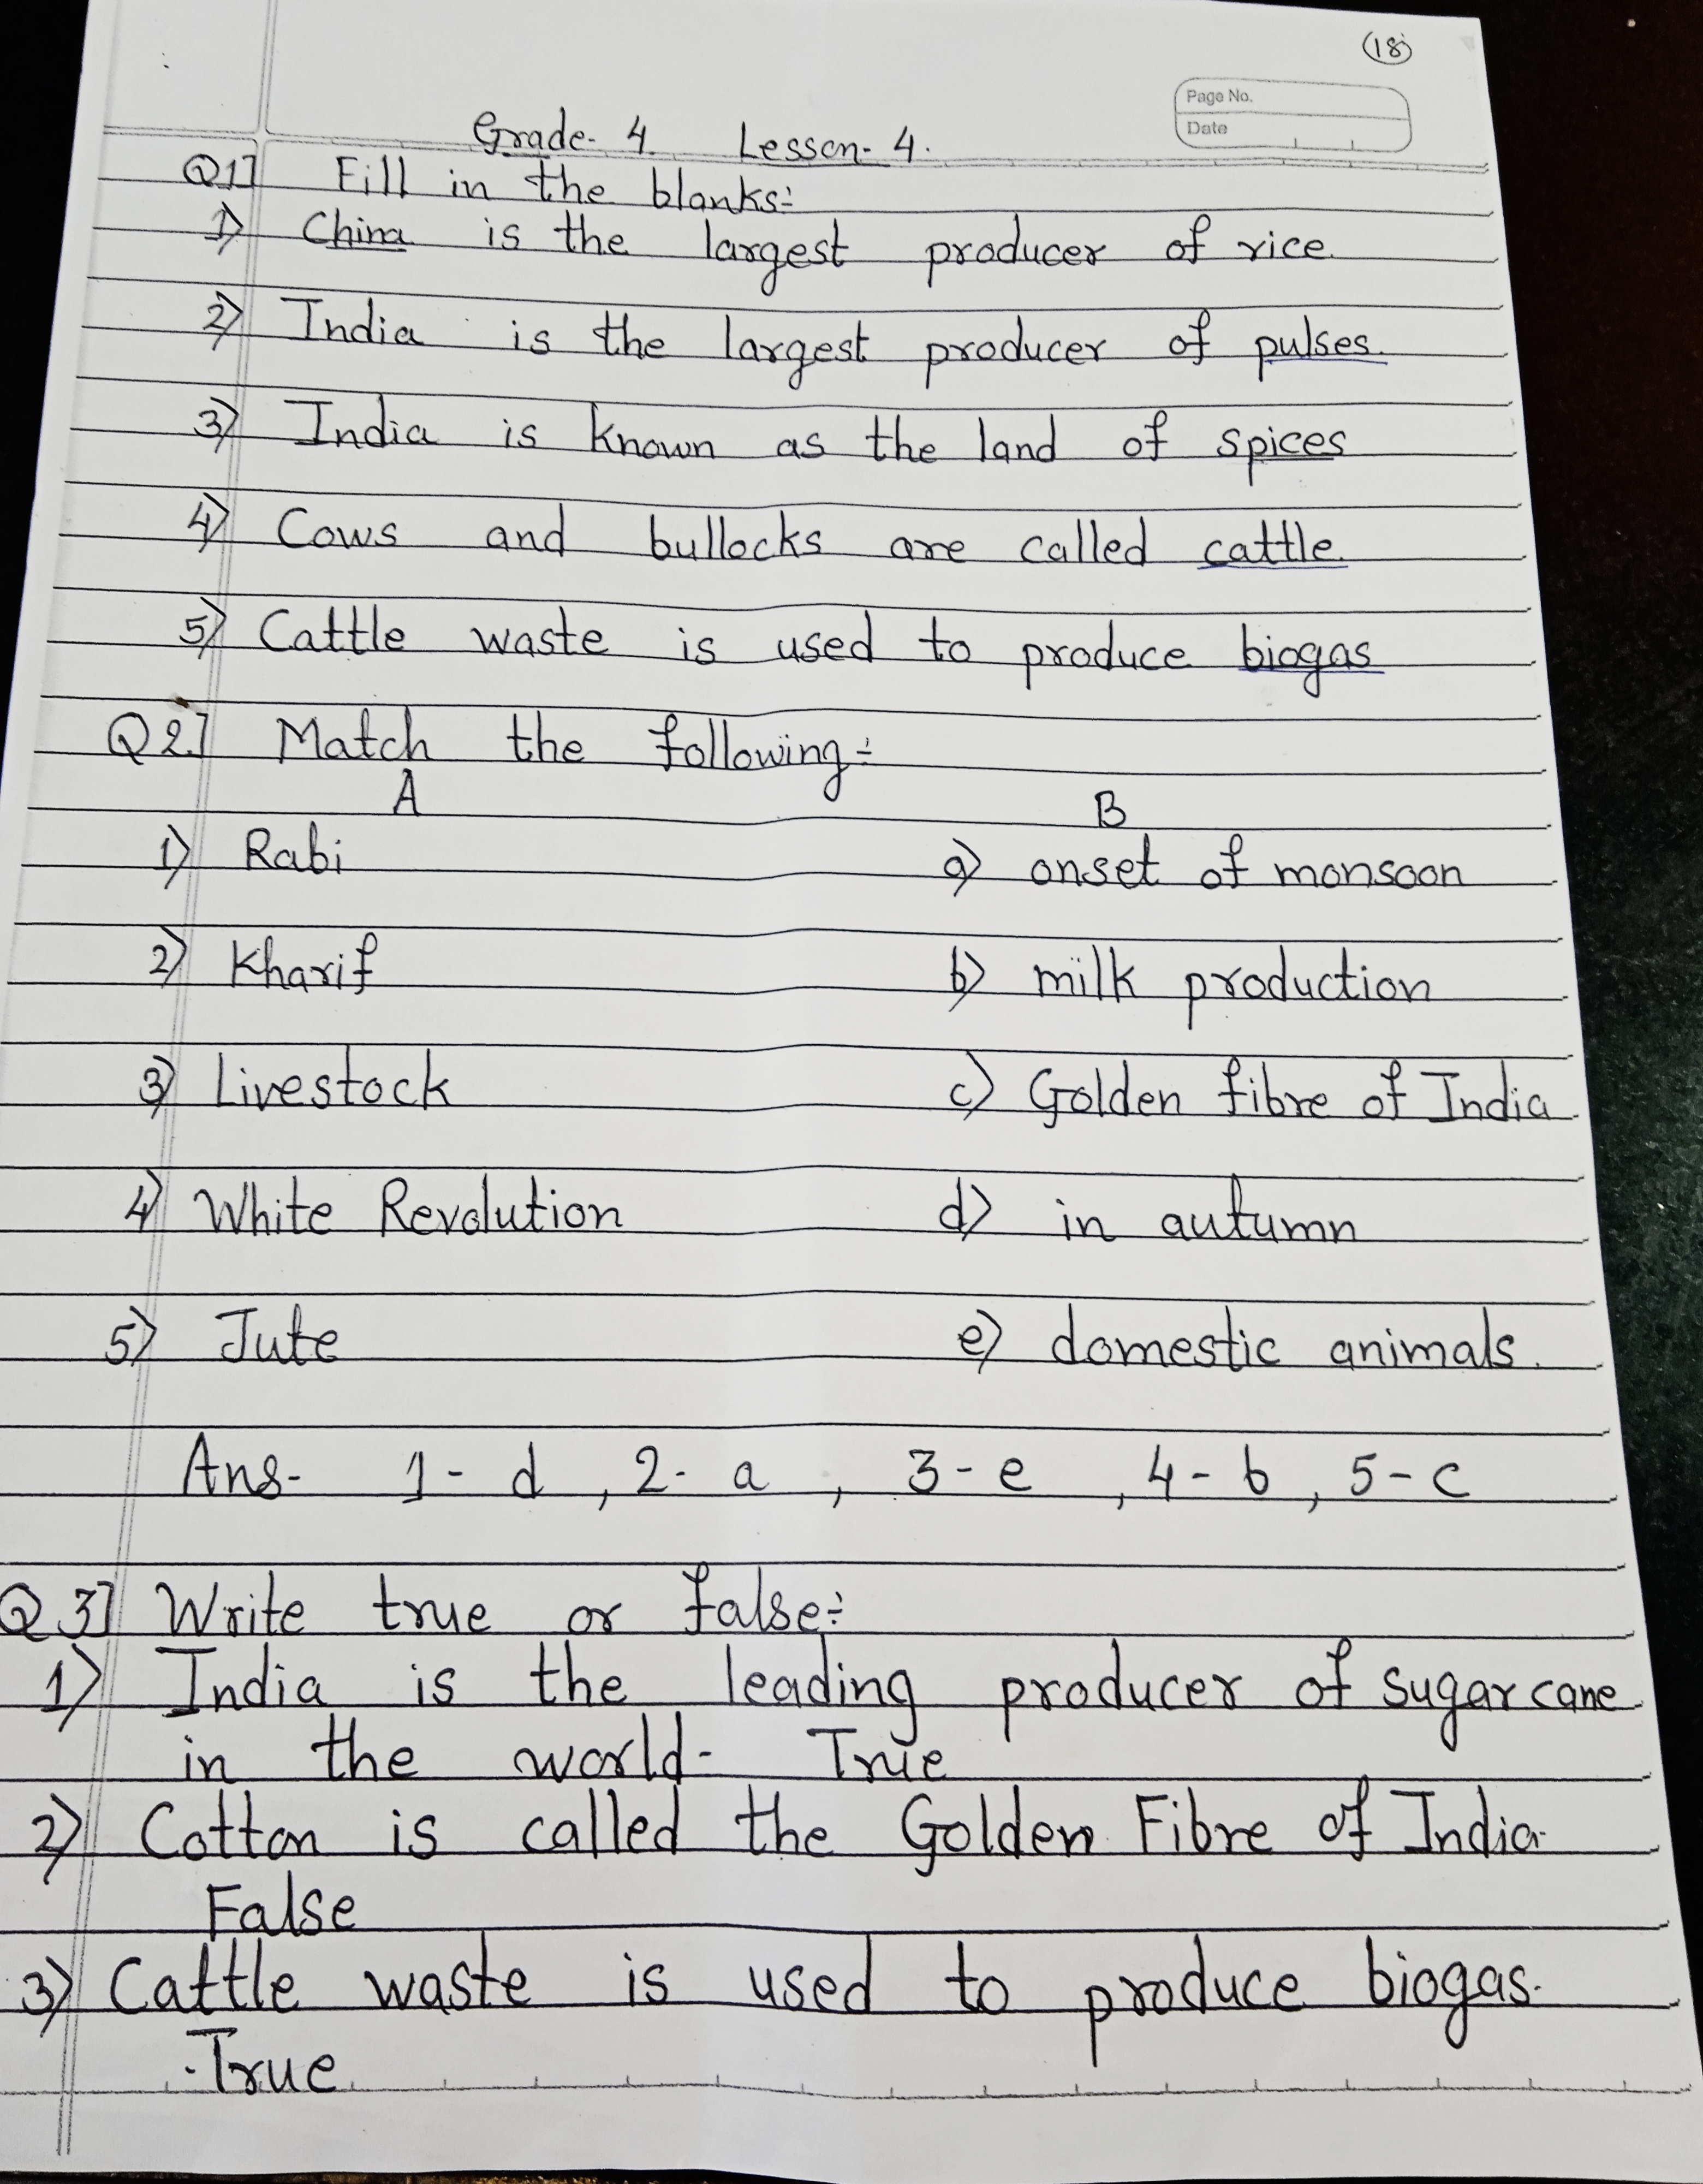 (18)
Page No.
Date
Grade- 4. Lesson- 4.
Q1] Fill in the blanks:-
1) China is the largest producer of rice.
2) India is the largest producer of pulses.
3) India is known as the land of spices
4) Cows and bullocks are called cattle.
5) Cattle waste is used to produce biogas
Q2.] Match the following:-
A B
1) Rabi a) onset of monsoon
2) Kharif b) milk production
3) Livestock c) Golden fibre of India
4) White Revolution d) in autumn
5) Jute e) domestic animals.
Ans- 1- d , 2- a , 3- e , 4- b , 5- c
Q 3] Write true or false:-
1) India is the leading producer of sugarcane
in the world- True
2) Cotton is called the Golden Fibre of India.
False
3) Cattle waste is used to produce biogas.
True.